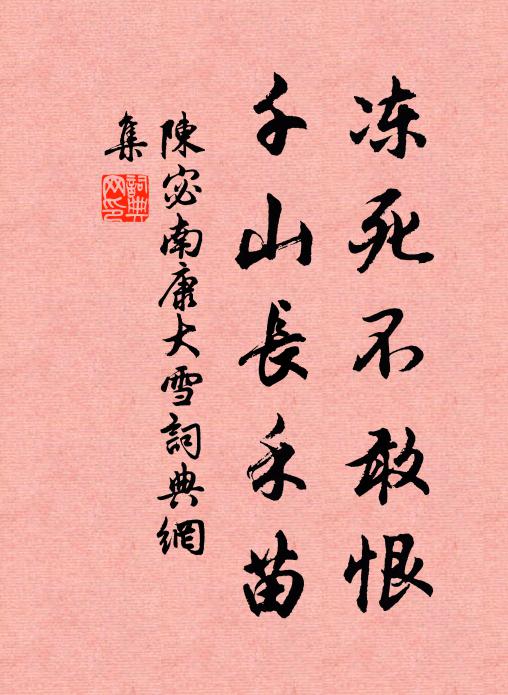 冻死不敢恨
千山長禾苗
陳宓南康大雪詞典網
集
詞典網印